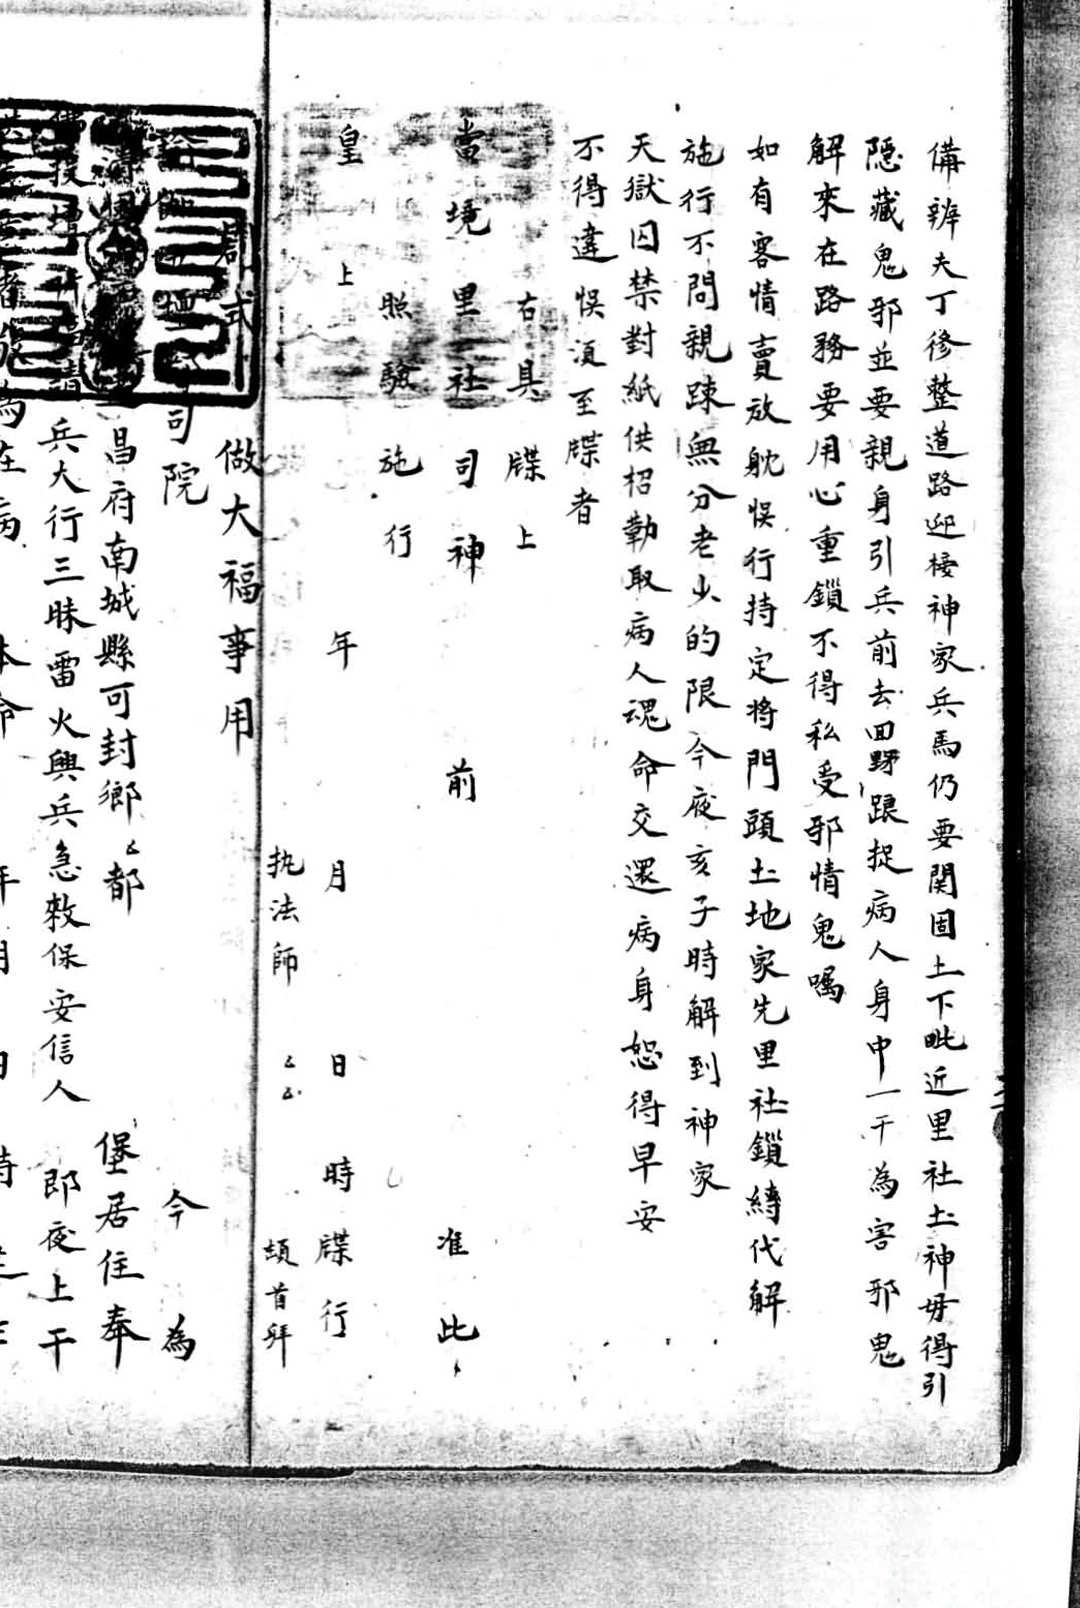 備辨夫丁修整道路迎接神家兵馬仍要関固土下毗近里社土神毋得引
隱藏鬼邪並要親身引兵前去回野踉捉病人身中一干為害邪鬼
解來在路務要用心重鎖不得私受邪情鬼嘱
如有客情賣放躭悞行持定将門頭土地家先里社鎖縛代解
施行不問親踈無分老少的限今夜亥子時解到神家
天獄囚禁對紙供招勒取病人魂命交還病身恕得早安
不得違悞湏至牒者
右具牒上
當境里社司神前准此
照驗施行
皇上年月日時牒行
执法師 頓首拜
式做大福事用
司院今為
昌府南城縣可封鄉都堡居住奉
兵大行三昧雷火興兵急救保安信人即夜上干
在病本命年月日時